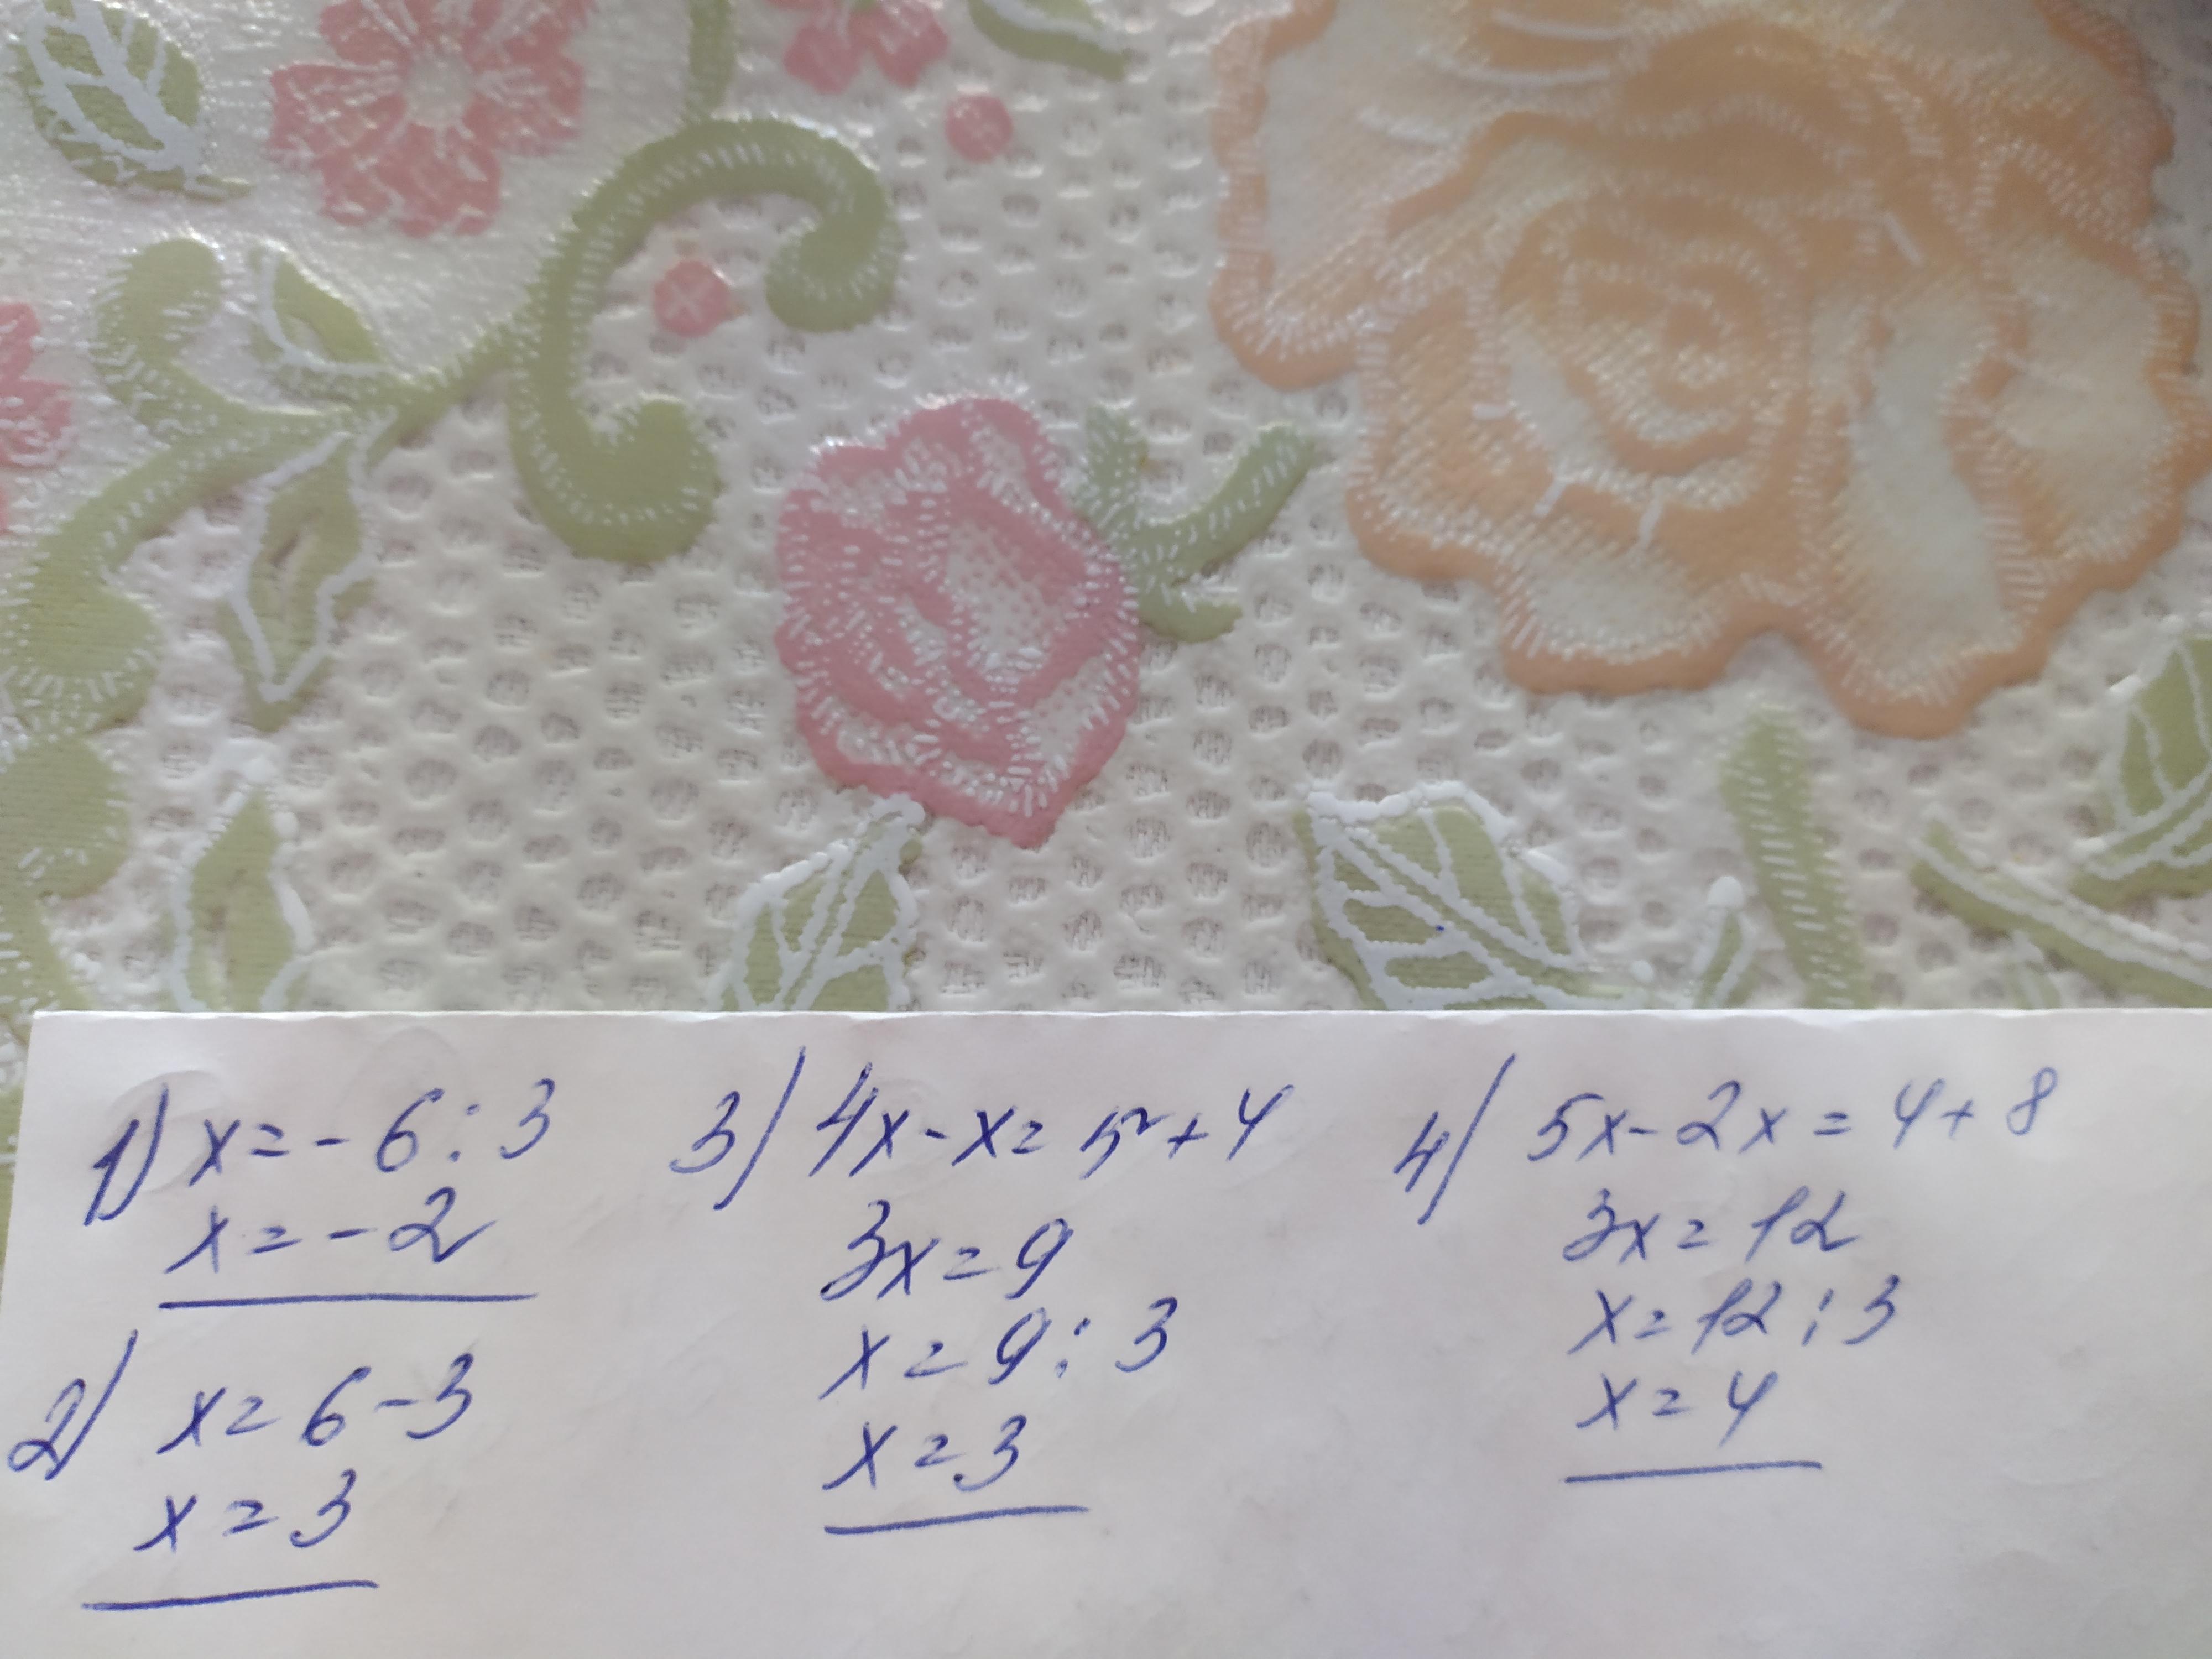 1) x = - 6 : 3
x = - 2
2) x = 6 - 3
x = 3
3) 4x - x = 5 + 4
3x = 9
x = 9 : 3
x = 3
4) 5x - 2x = 4 + 8
3x = 12
x = 12 : 3
x = 4